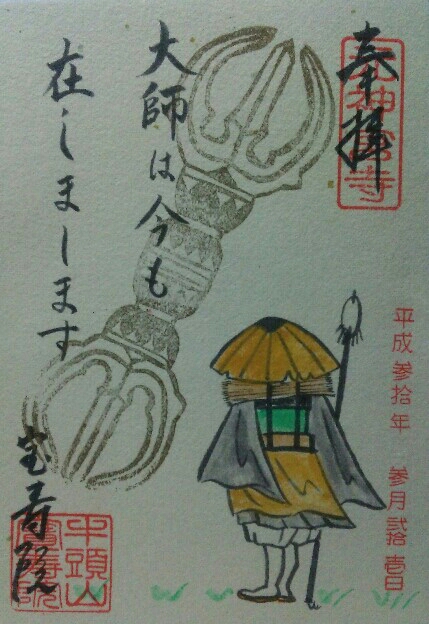 奉拝
大師は今も
在しまします
平成参拾年 参月弐拾壱日
宝寿院
牛頭山
寶壽院